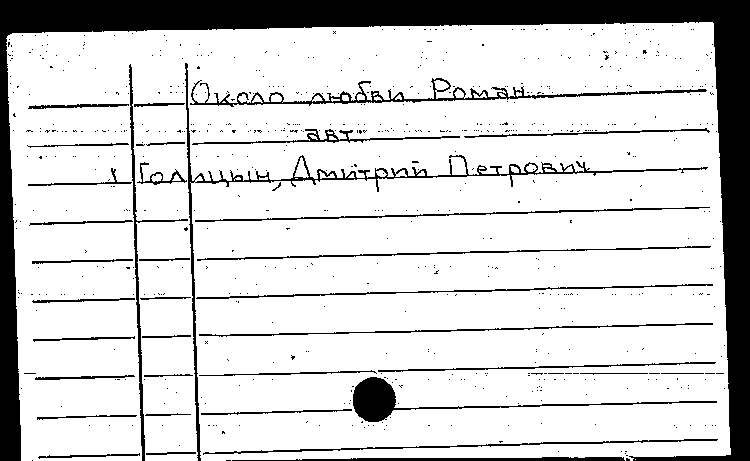 Около любви Роман.
авт.
1 Голицын, Дмитрий Петрович.